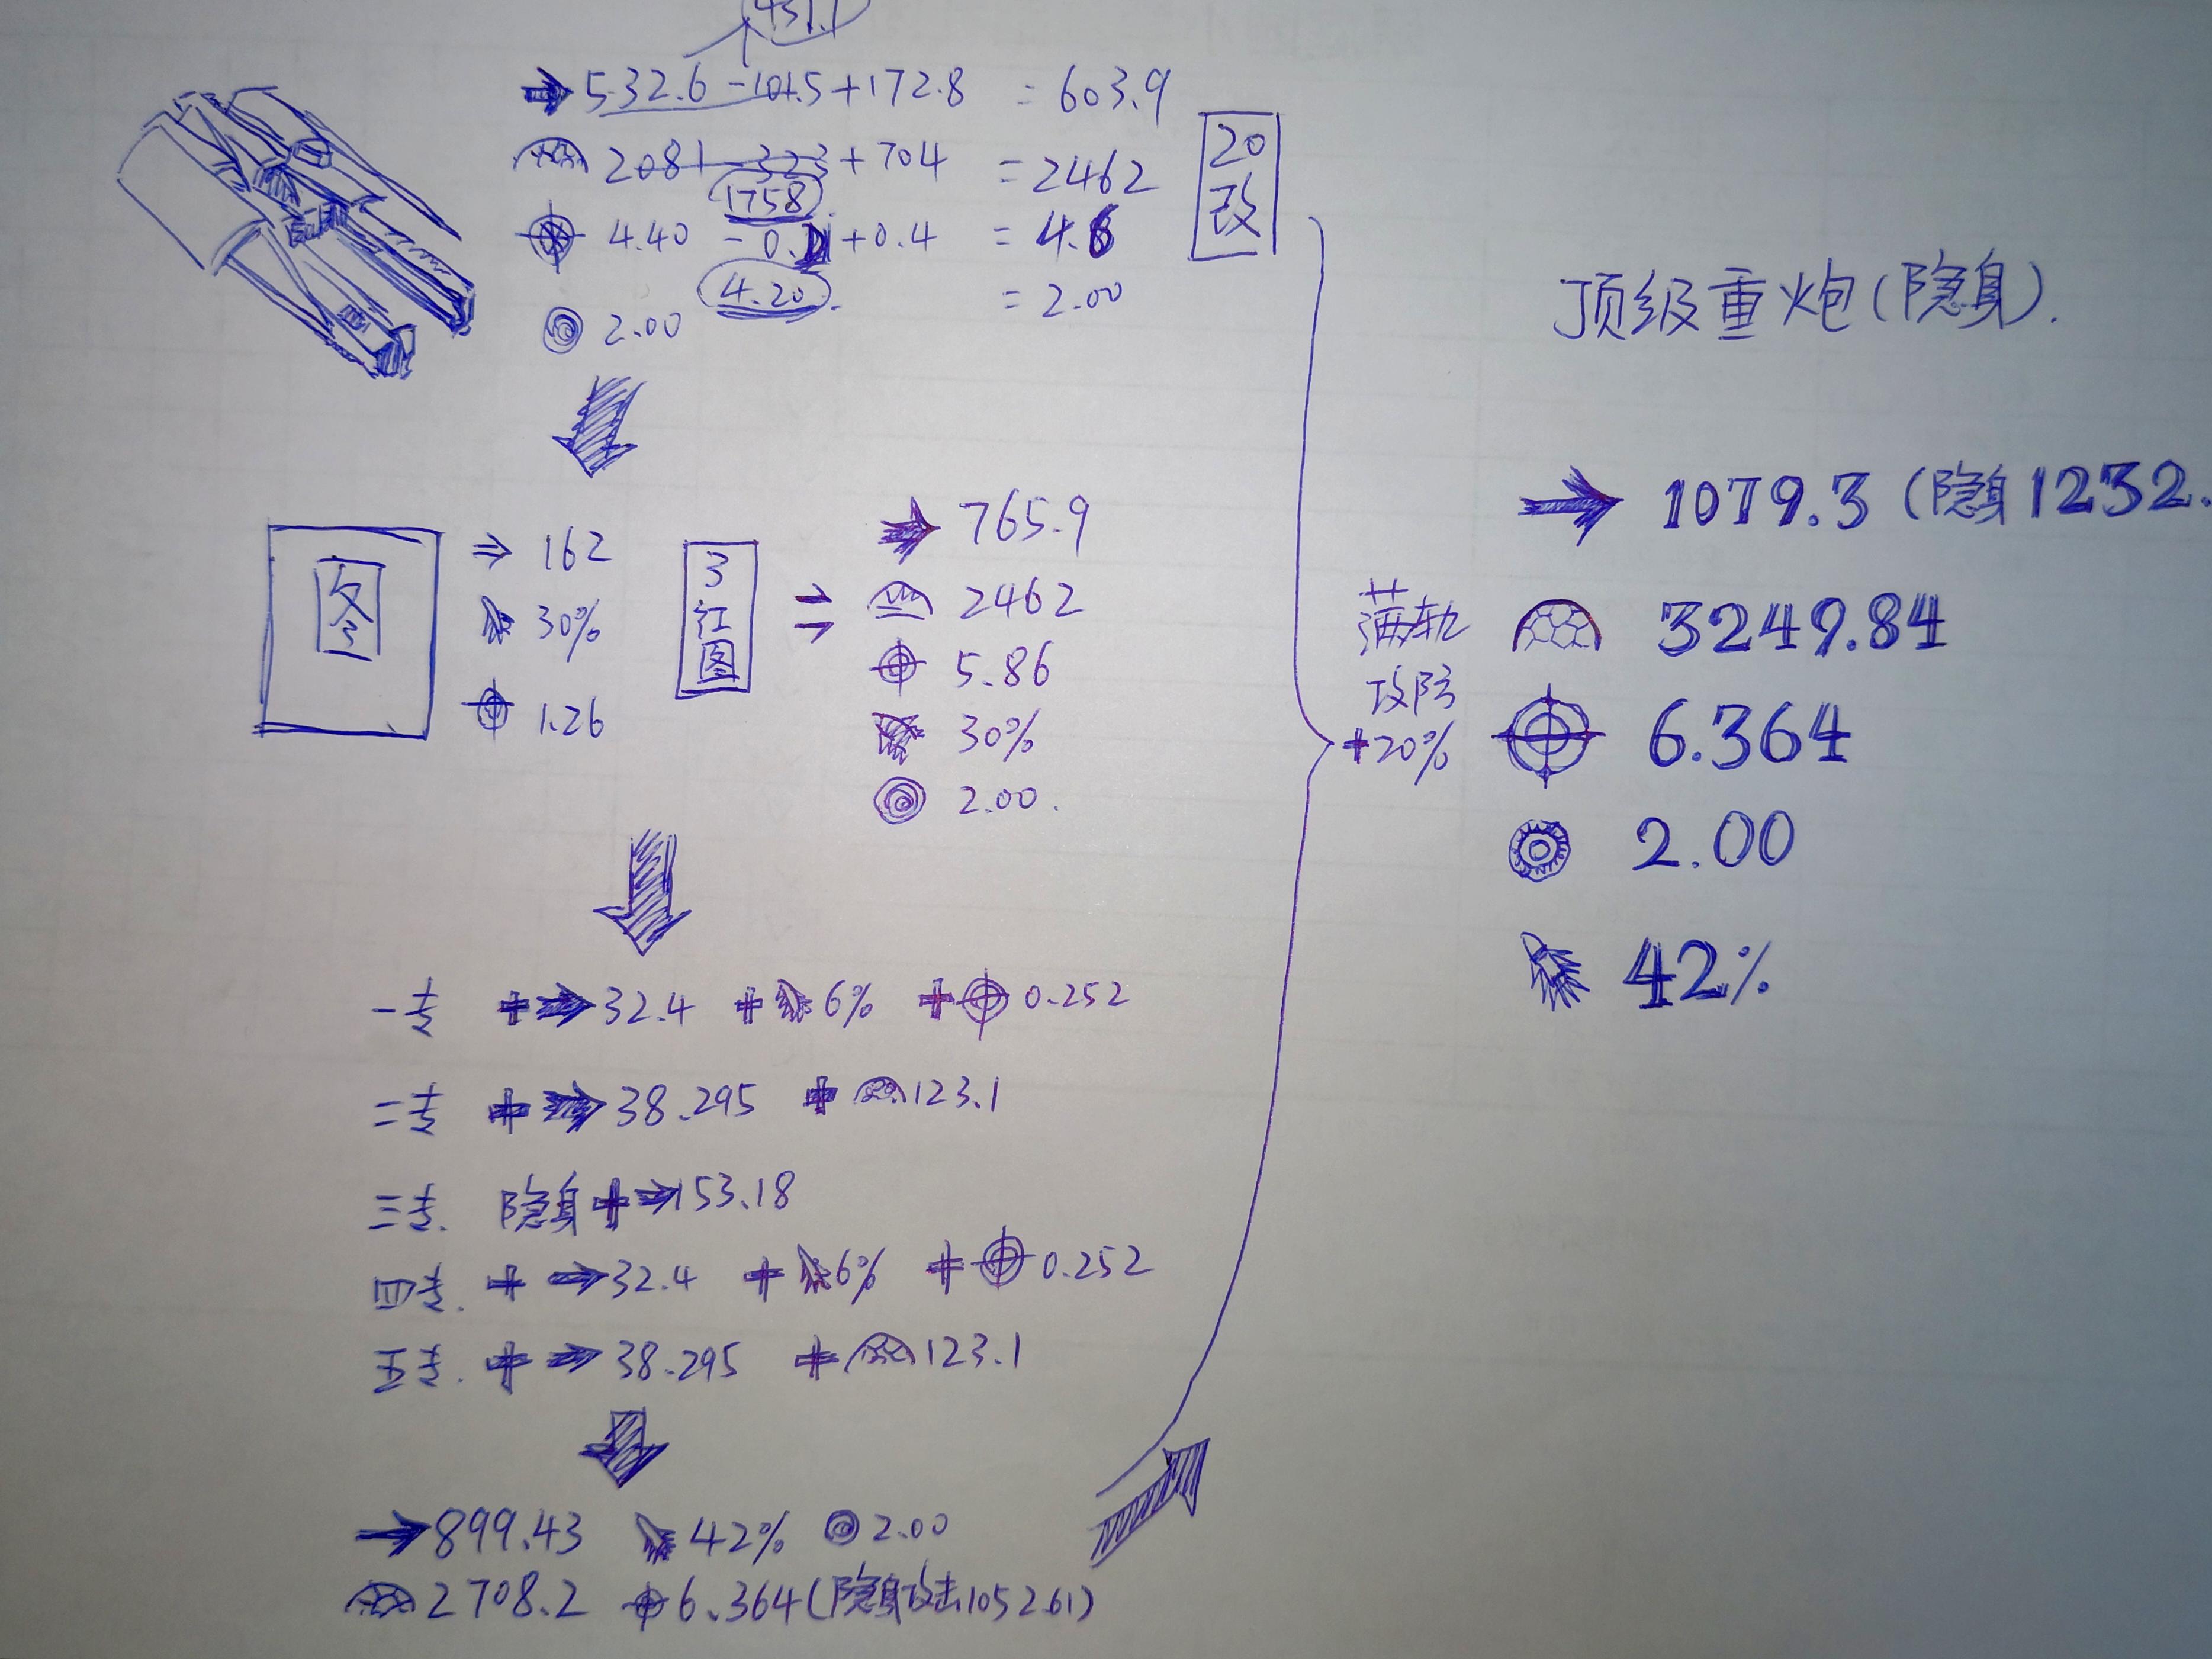 431.1
532.6 -101.5 +172.8 = 603.9
2081 -323 +704 = 2462
1758
4.40 - 0. +0.4 = 4.6
4.20
2.00 = 2.00
20
改
图
⇒ 162
30%
1.26
3
红
图
765.9
2462
5.86
30%
2.00.
一专 + 32.4 + 6% + 0.252
二专 + 38.295 + 123.1
三专. 隐身 + 153.18
四专. + 32.4 + 6% + 0.252
五专. + 38.295 + 123.1
899.43 42% 2.00
2708.2 6.364 (隐身攻击1052.61)
顶级重炮(隐身).
满轨
攻防
+20%
1079.3 (隐身1232.
3249.84
6.364
2.00
42%